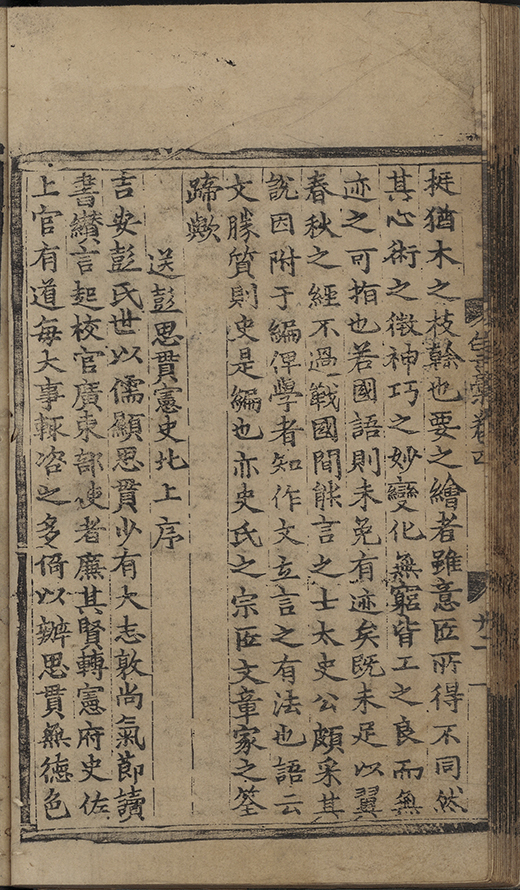 挺猶木之枝幹也要之繪者雖意匠所得不同然
其心術之微神巧之妙變化無窮皆工之良而無
迹之可指也若國語則未免有迹矣既未足以翼
春秋之經不過戰國間能言之士太史公頗采其
說因附于編俾學者知作文立言之有法也語云
文勝質則史是編也亦史氏之宗匠文章家之筌
蹄歟
送彭思貫憲史北上序
吉安彭氏世以儒顯思貫少有大志敦尚氣節讀
書纘言起校官廣東部使者廉其賢轉憲府史佐
上官有道每大事輙咨之多倚以辦思貫無德色
卷四